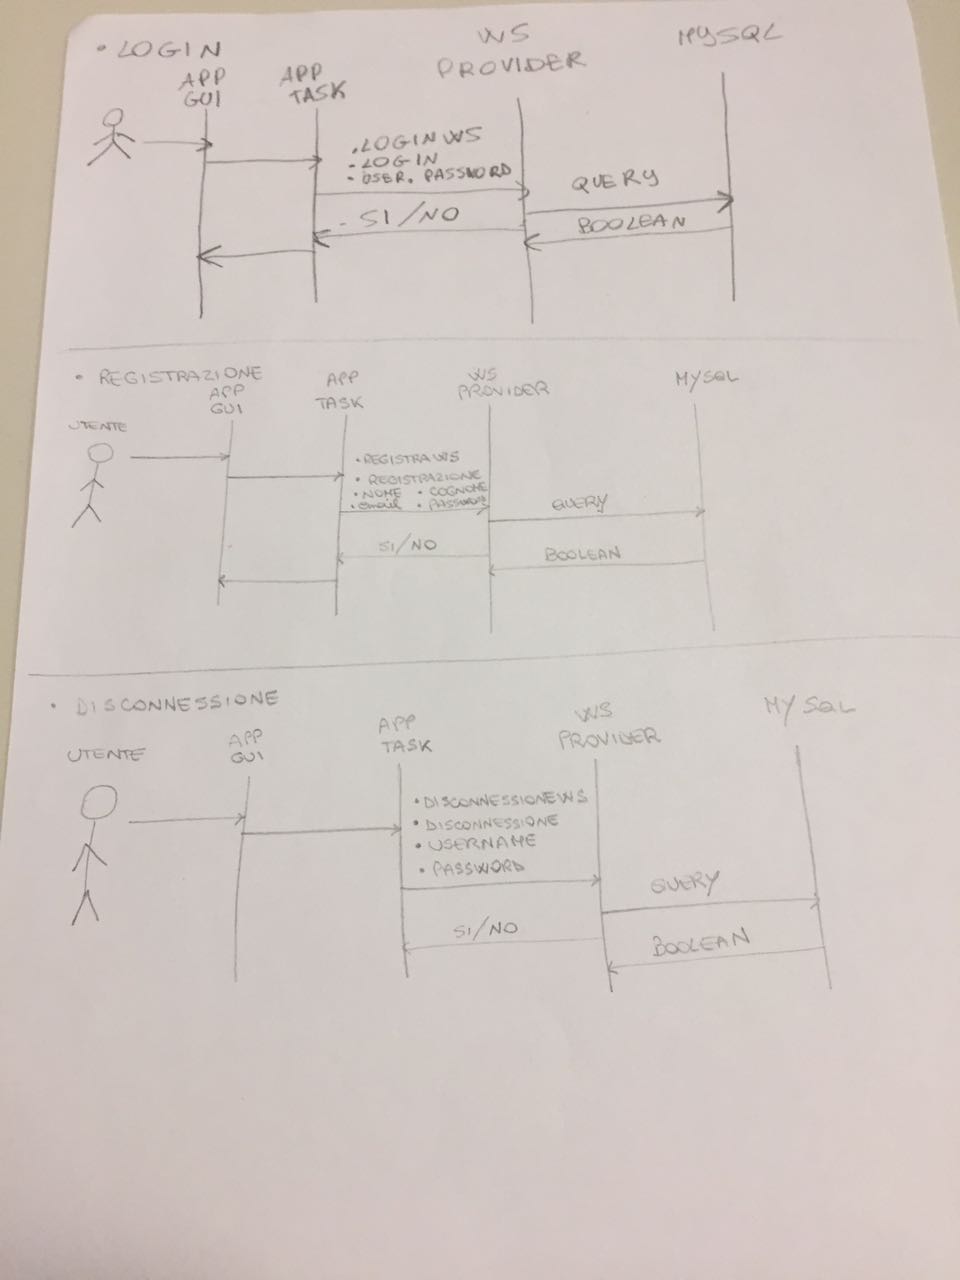 • LOGIN
APP
GUI
APP
TASK
WS
PROVIDER
MYSQL
• LOGIN WS
- LOGIN
• USER. PASSWORD
QUERY
- SI/NO
BOOLEAN
• REGISTRAZIONE
UTENTE
APP
GUI
APP
TASK
WS
PROVIDER
MYSQL
• REGISTRAWS
• REGISTRAZIONE
• NOME • COGNOME
• email • PASSWORD
QUERY
SI/NO
BOOLEAN
• DISCONNESSIONE
UTENTE
APP
GUI
APP
TASK
WS
PROVIDER
MYSQL
• DISCONNESSIONEWS
• DISCONNESSIONE
• USERNAME
• PASSWORD
QUERY
SI/NO
BOOLEAN